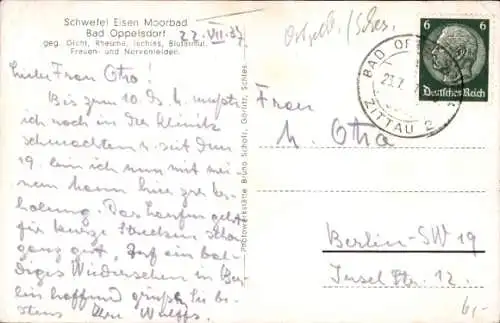 Schwefel Eisen Moorbad
Bad Oppelsdorf
geg. Gicht, Rheuma, Ischias, Blutarmut,
Frauen- und Nervenleiden.
22.VII.37
Liebe Frau Otra!
Bis zum 10. ds. M. mußte
ich noch in der Klinik
schmachten u. seit dem
19. bin ich nun mit mei-
nem Mann hier zur Er-
holung. Das Laufen geht
für kurze Strecken schon
ganz gut. Auf ein bal-
diges Wiedersehen in Ber-
lin hoffend grüßt Sie be-
stens Ihre Wulffs.
Photowerkstätte Bruno Scholz, Görlitz, Schles.
BAD OPPELSDORF
23.7.
ZITTAU 2
6 6
Deutsches Reich
Frau
M. Otra
Berlin-SW 19
Insel Str. 12.
6,-